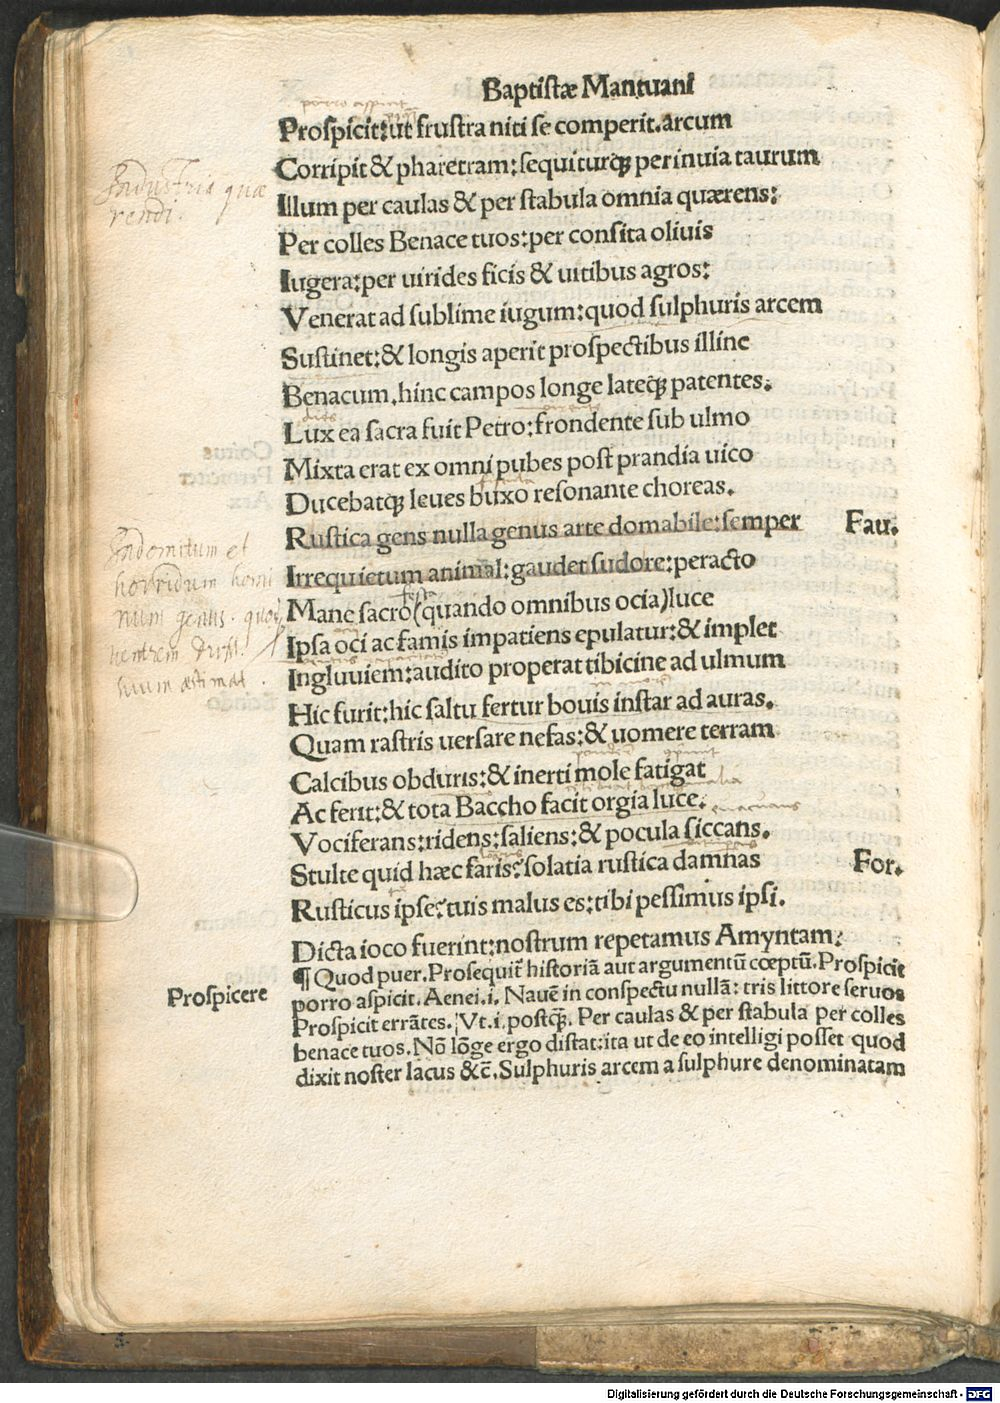 Baptistæ Mantuani
porro aspicit
Prospicit: ut frustra niti se comperit. arcum
Corripit & pharetram: sequiturqꝫ per inuia taurum
Industria quæ
rendi.
Illum per caulas & per stabula omnia quærens:
Per colles Benace tuos: per consita oliuis
Iugera: per uirides ficis & uitibus agros:
Venerat ad sublime iugum: quod sulphuris arcem
Sustinet: & longis aperit prospectibus illinc
Benacum, hinc campos longe lateqꝫ patentes.
dies
Lux ea sacra fuit Petro: frondente sub ulmo
Mixta erat ex omni pubes post prandia uico
fistula
Ducebatqꝫ leues buxo resonante choreas.
Rustica gens nulla genus arte domabile: semper Fau.
Indomitum et
horridum homi
num genus. quod
ventrem Deum
suum æstimat.
Irrequietum animal: gaudet sudore: peracto
festa
Mane sacro (quando omnibus ocia) luce
Ipsa oci ac famis impatiens epulatur: & implet
Ingluuiem: audito properat tibicine ad ulmum
Hic furit: hic saltu fertur bouis instar ad auras.
Quam rastris uersare nefas: & uomere terram
Calcibus obduris: & inerti mole fatigat
Ac ferit: & tota Baccho facit orgia luce.
euacuans
Vociferans: ridens: saliens: & pocula siccans.
Stulte quid hæc faris? solatia rustica damnas For.
Rusticus ipse? tuis malus es: tibi pessimus ipsi.
Dicta ioco fuerint: nostrum repetamus Amyntam.
¶ Quod puer. Prosequit̃ historiã aut argumentũ cœptũ. Prospicit
Prospicere
porro aspicit. Aenei. i. Nauẽ in conspectu nullã: tris littore seruos
Prospicit errãtes. Vt. i. postqꝫ. Per caulas & per stabula per colles
benace tuos. Nõ lõge ergo distat: ita ut de eo intelligi posset quod
dixit noster lacus &c̃. Sulphuris arcem a sulphure denominatam
Digitalisierung gefördert durch die Deutsche Forschungsgemeinschaft - DFG